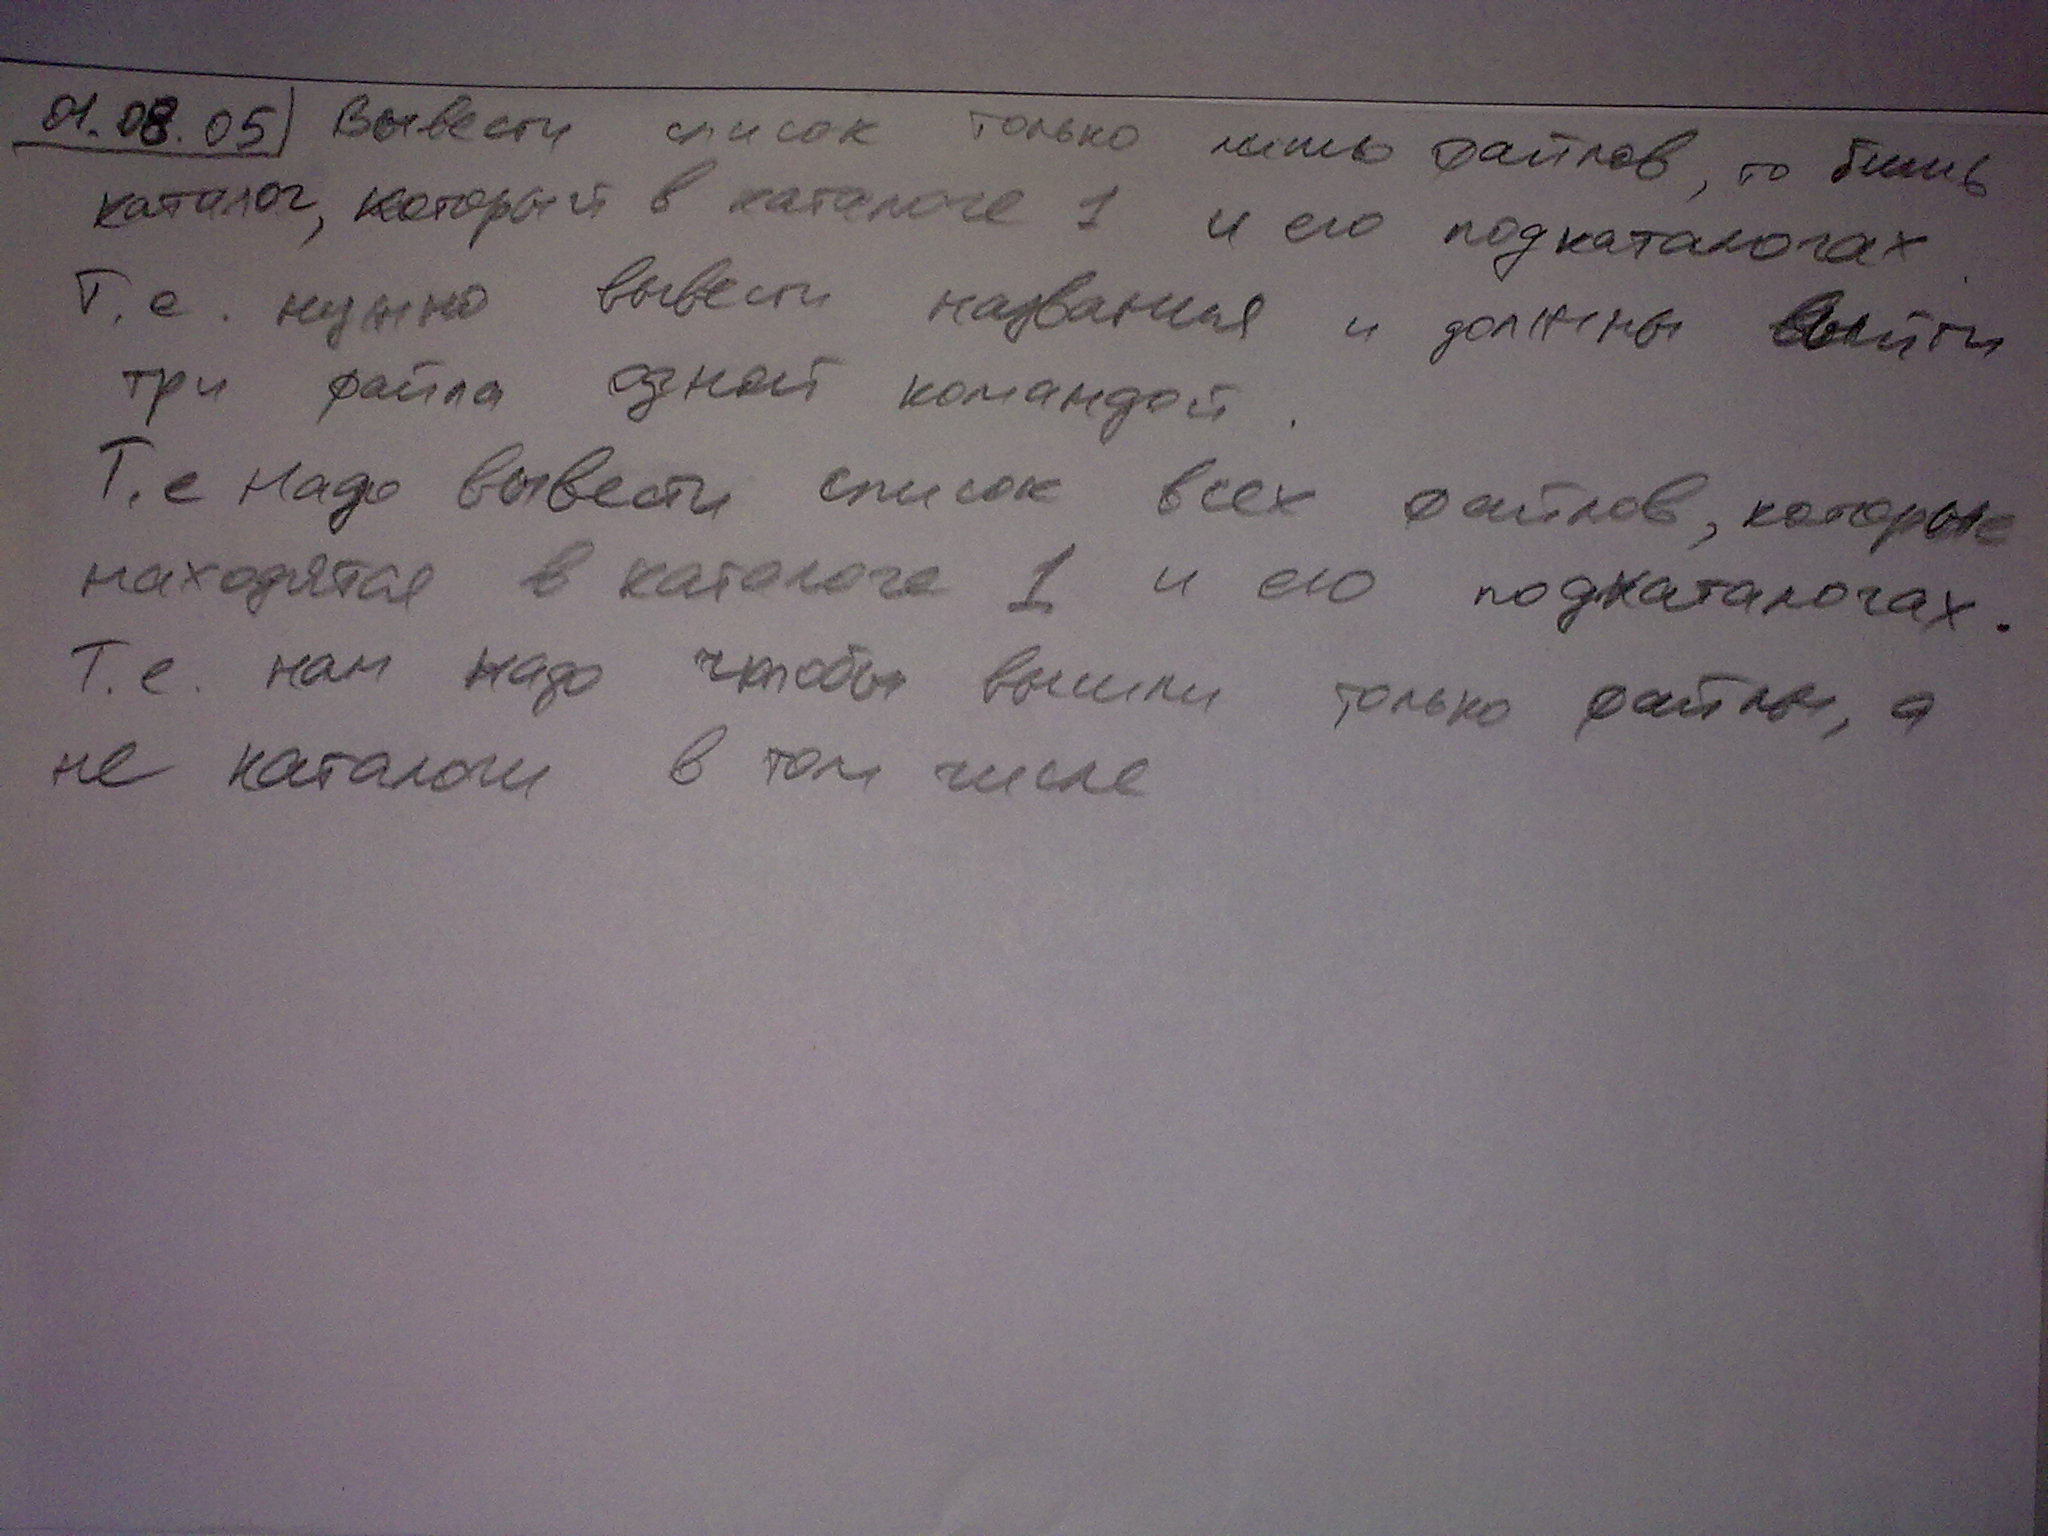 01.08.05 Вывести список только лишь файлов, то бишь
каталог, который в каталоге 1 и его подкаталогах.
Т.е. нужно вывести названия и должны выйти
три файла одной командой.
Т.е надо вывести список всех файлов, которые
находятся в каталоге 1 и его подкаталогах.
Т.е. нам надо чтобы вышли только файлы, а
не каталоги в том числе